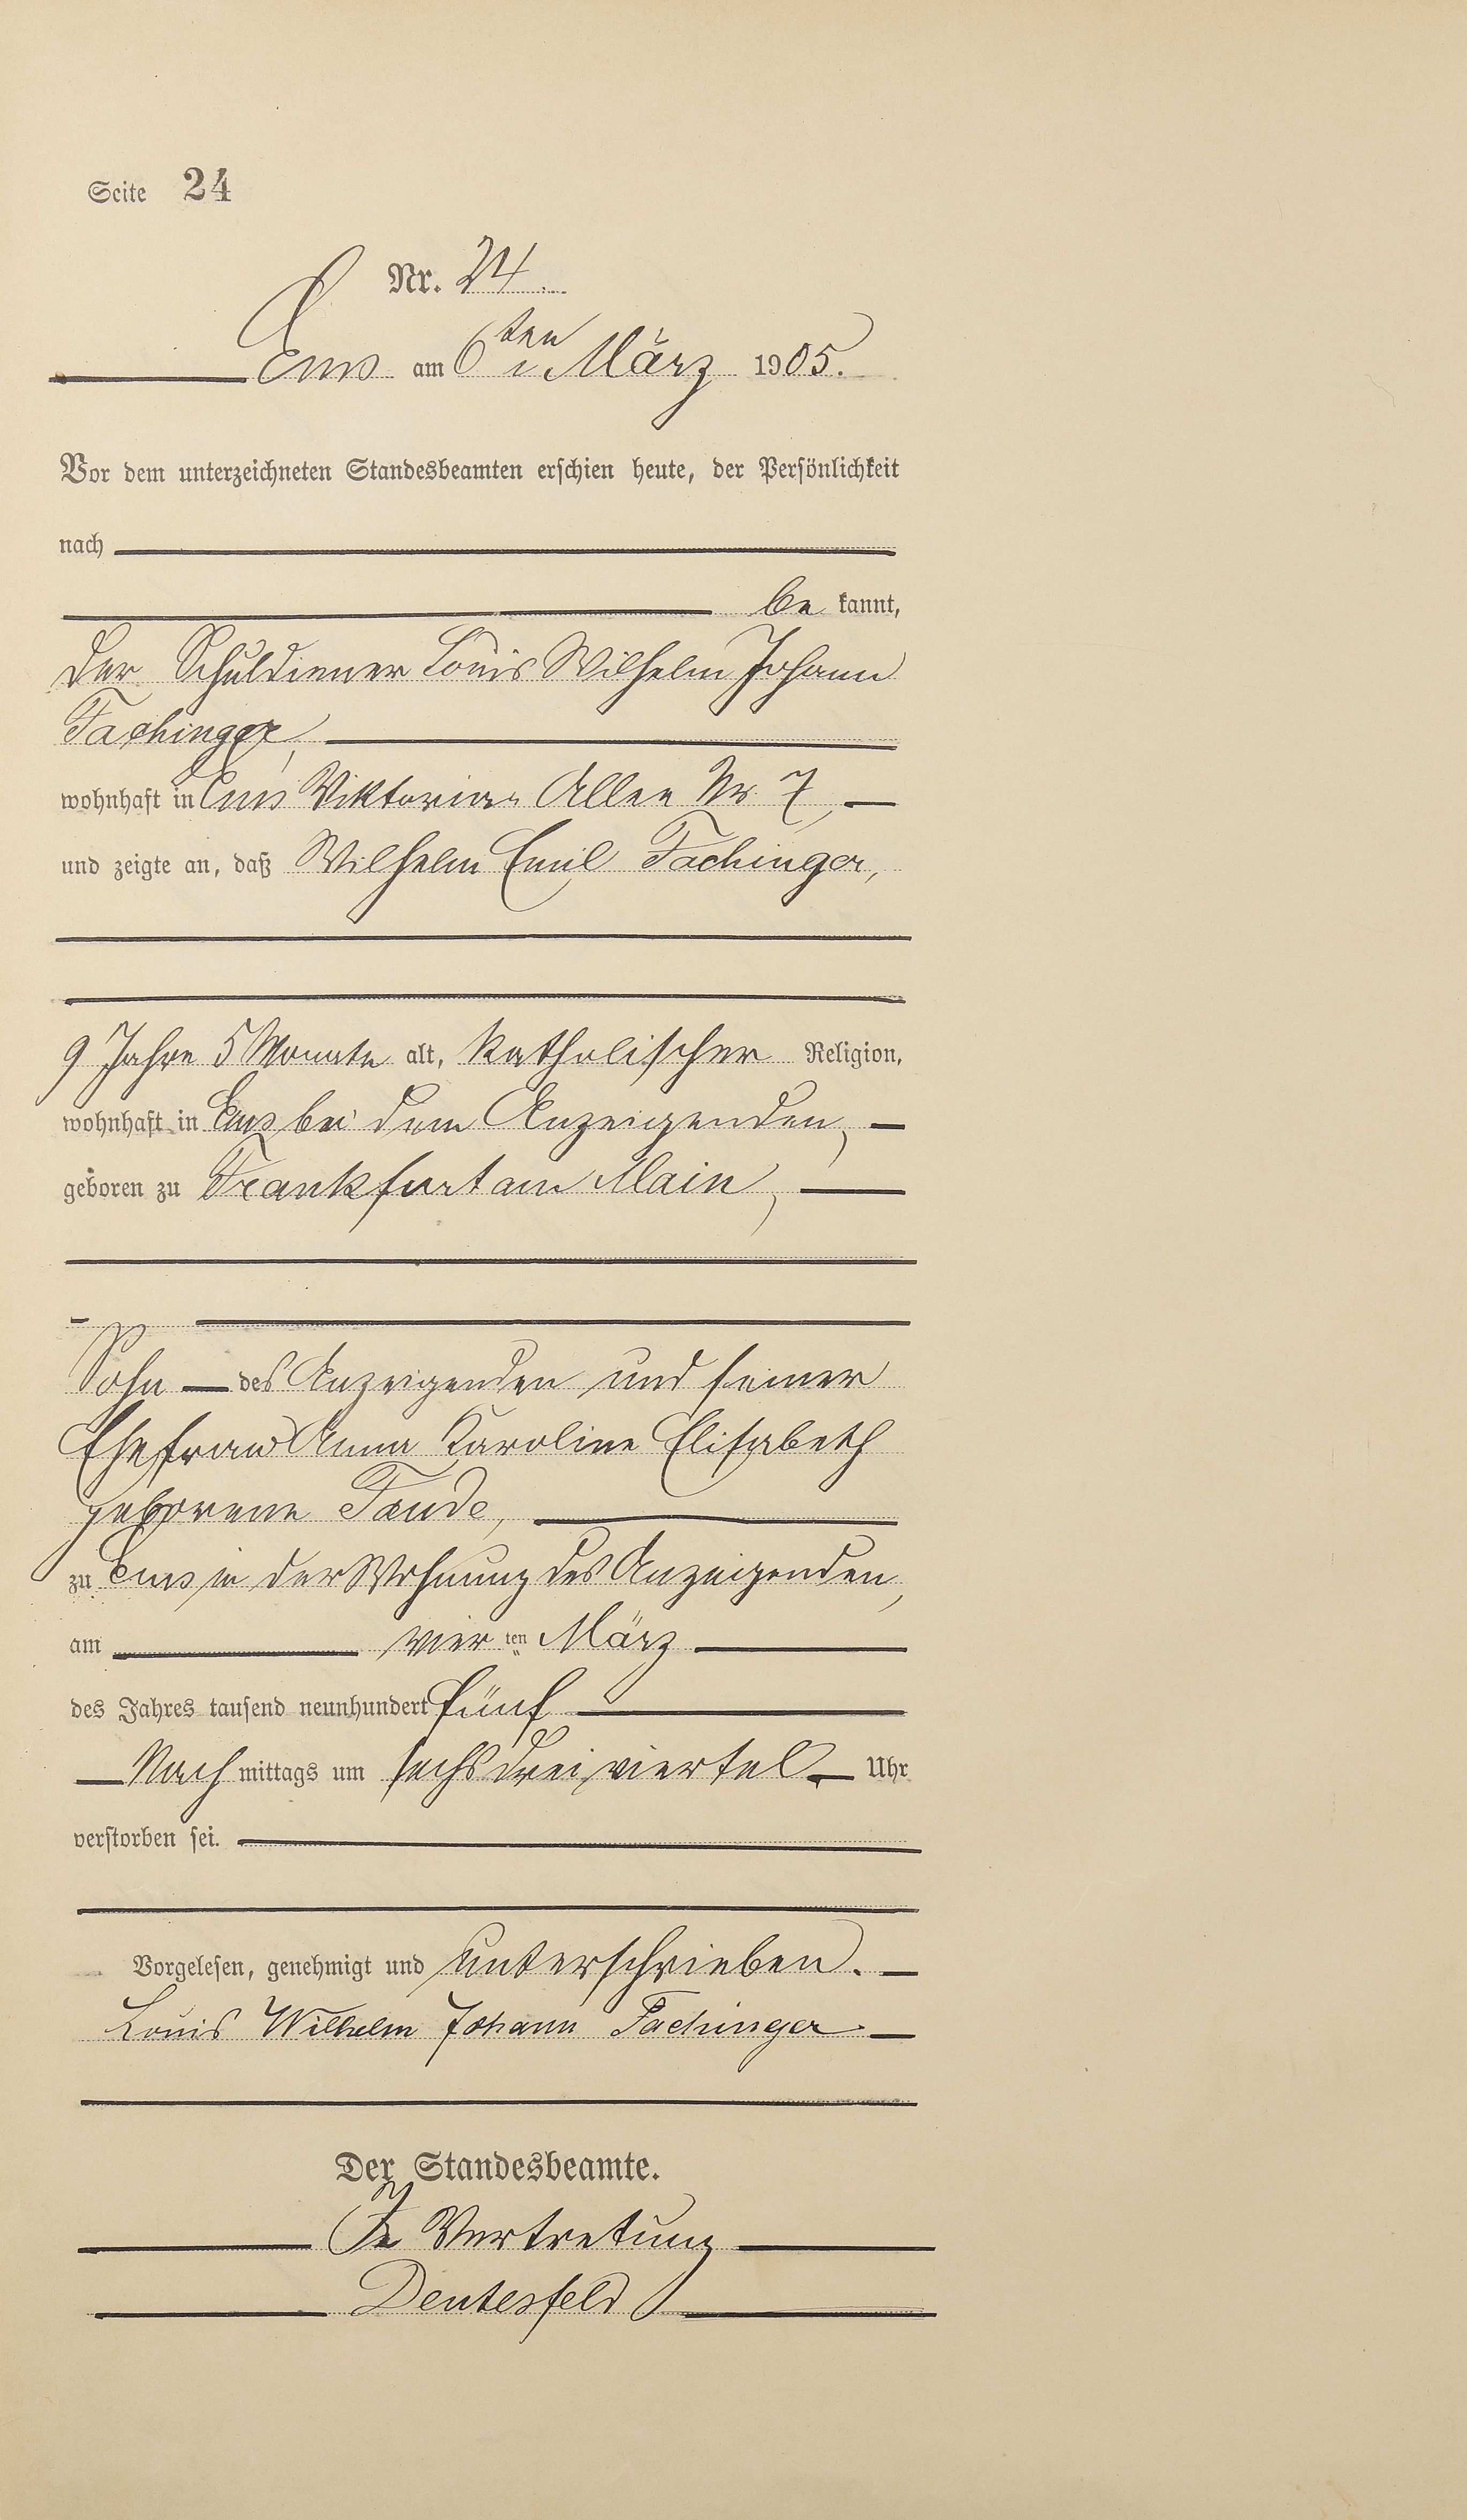 Seite 24
Nr. 24.
Ems am 6ten März 1905.
Vor dem unterzeichneten Standesbeamten erschien heute, der Persönlichkeit
nach
be kannt,
der Schuldiener Louis Wilhelm Johann
Fachinger,
wohnhaft in Ems Viktoria-Allee Nr. 7,
und zeigte an, daß Wilhelm Emil Fachinger,
9 Jahre 5 Monate alt, katholischer Religion,
wohnhaft in Ems bei dem Anzeigenden,
geboren zu Frankfurt am Main,
Sohn des Anzeigenden und seiner
Ehefrau Anna Karoline Elisabeth
geborene
zu Ems in der Wohnung des Anzeigenden,
am vier ten März
des Jahres tausend neunhundert fünf
Nach mittags um sechs dreiviertel Uhr
verstorben sei.
Vorgelesen, genehmigt und unterschrieben.
Louis Wilhelm Johann Fachinger
Der Standesbeamte.
In Vertretung